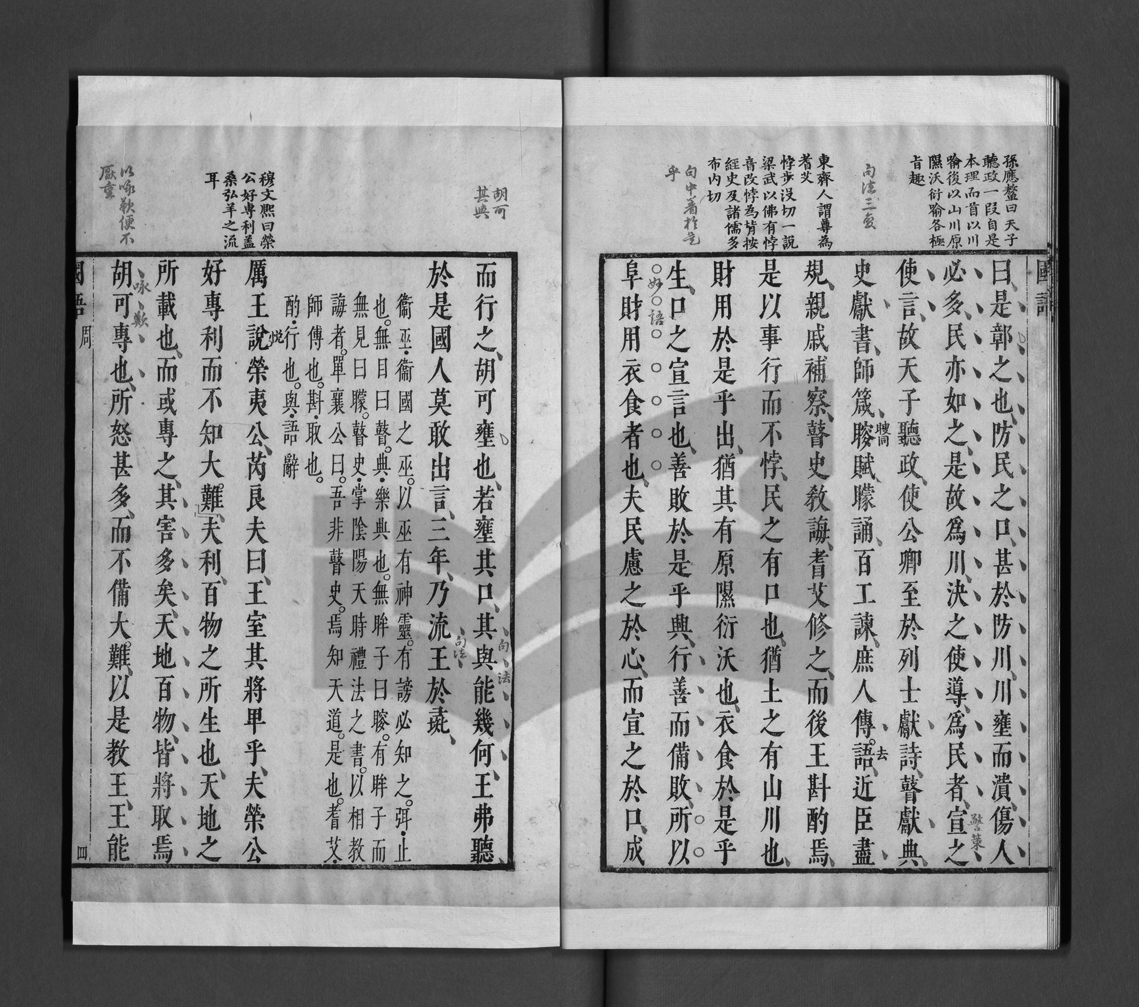 孫應鰲曰天子
聽政一段自是
本理而首以川
喻後以山川原
隰沃衍喻各極
旨趣
句法三變
東齊人謂尊為
耆艾
悖步沒切一說
梁武以佛有悖
音改悖為背按
經史及諸儒多
布內切
曰是鄣之也防民之口甚於防川川壅而潰傷人
必多民亦如之是故為川決之使導為民者宣之
使言故天子聽政使公卿至於列士獻詩瞽獻典
史獻書師箴瞍賦矇誦百工諫庶人傳語近臣盡
規親戚補察瞽史教誨耆艾修之而後王斟酌焉
是以事行而不悖民之有口也猶土之有山川也
財用於是乎出猶其有原隰衍沃也衣食於是乎
生口之宣言也善敗於是乎興行善而備敗所以
好語
阜財用衣食者也夫民慮之於心而宣之於口成
胡可
其與
而行之胡可壅也若壅其口其與能幾何王弗聽
句法
於是國人莫敢出言三年乃流王於彘
衛巫衛國之巫以巫有神靈有謗必知之弭止
也無目曰瞽典樂典也無眸子曰瞍有眸子而
無見曰矇瞽史掌陰陽天時禮法之書以相教
誨者單襄公曰吾非瞽史焉知天道是也耆艾
師傅也斟取也
酌行也與語辭
穆文熙曰榮
公好專利蓋
桑弘羊之流
耳
厲王說榮夷公芮良夫曰王室其將卑乎夫榮公
悅
好專利而不知大難夫利百物之所生也天地之
所載也而或專之其害多矣天地百物皆將取焉
咏歎
胡可專也所怒甚多而不備大難以是教王王能
以咏歎便不
厭重
國語
周
四